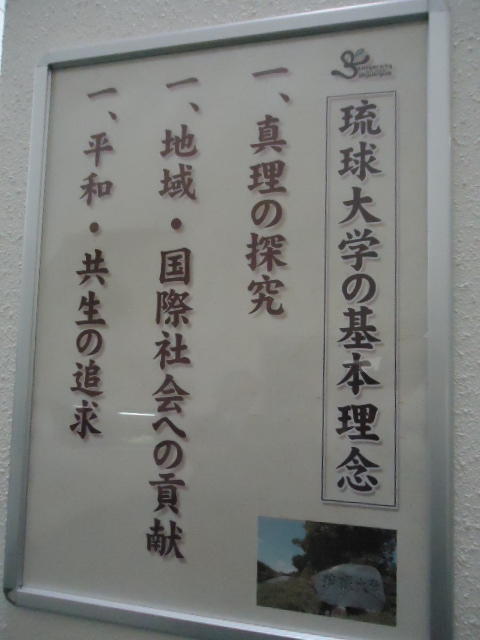 琉球大学の基本理念
一、真理の探究
一、地域・国際社会への貢献
一、平和・共生の追求